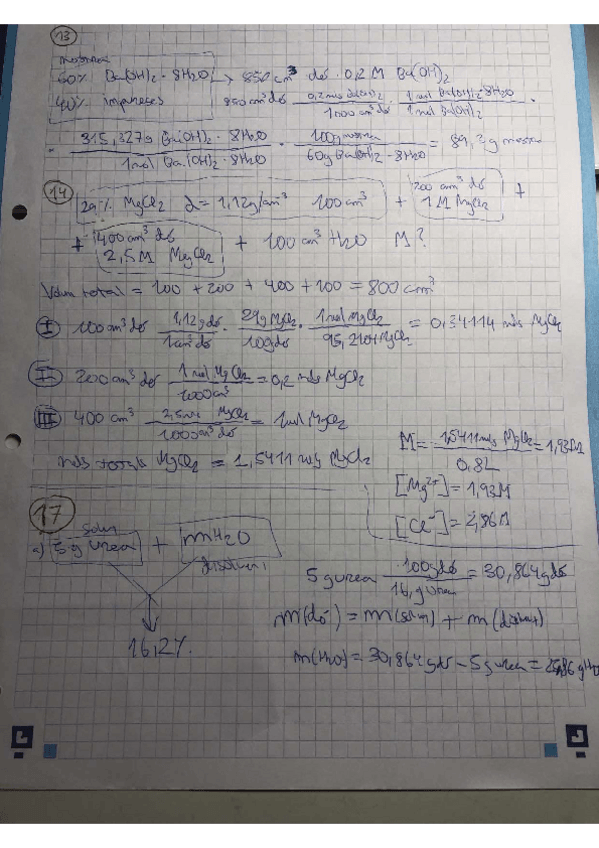 13
mostra
60% Ba(OH)₂ · 8H₂O → 850 cm³ dó 0,2 M Ba(OH)₂
40% impureses 850 cm³ dó · 0,2 mols Ba(OH)₂ / 1000 cm³ dó · 1 mol Ba(OH)₂·8H₂O / 1 mol Ba(OH)₂ ·
· 315,327g Ba(OH)₂ · 8H₂O / 1 mol Ba(OH)₂ · 8H₂O · 100g mostra / 60g Ba(OH)₂ · 8H₂O = 89,3 g mostra
14
29% MgCl₂ d = 1,12g/cm³ 100 cm³ + 200 cm³ dó 1 M MgCl₂ +
+ 400 cm³ dó 2,5 M MgCl₂ + 100 cm³ H₂O M?
Volum total = 100 + 200 + 400 + 100 = 800 cm³
I 100 cm³ dó · 1,12g dó / 1 cm³ dó · 29g MgCl₂ / 100g dó · 1 mol MgCl₂ / 95,21g MgCl₂ = 0,34114 mols MgCl₂
II 200 cm³ dó · 1 mol MgCl₂ / 1000 cm³ = 0,2 mols MgCl₂
III 400 cm³ · 2,5 mols MgCl₂ / 1000 cm³ dó = 1 mol MgCl₂
mols totals MgCl₂ = 1,5411 mols MgCl₂
M = 1,5411 mols MgCl₂ / 0,8L = 1,93M
[Mg²⁺] = 1,93M
[Cl⁻] = 3,86M
17
solut
a) 5 g urea + m H₂O
dissolvent
16,2%
5 g urea · 100g dó / 16,2 g urea = 30,864 g dó
m(dó) = m(solut) + m(dissolvent)
m(H₂O) = 30,864 g dó - 5 g urea = 25,86 g H₂O